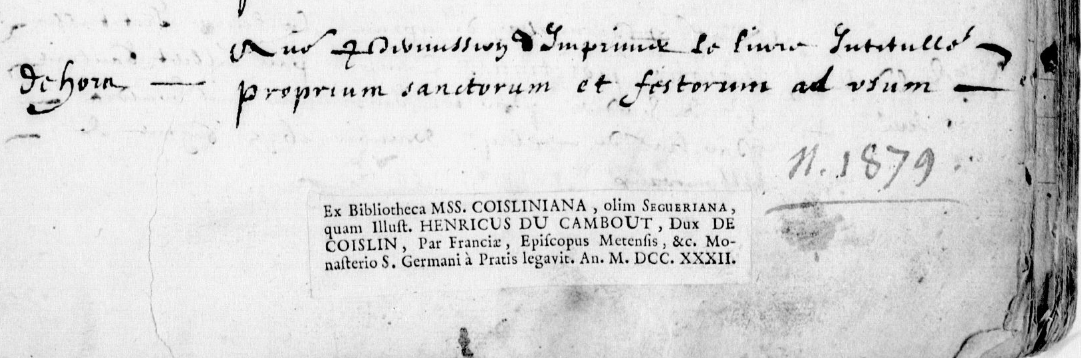 de hora — permission d Imprimer le livre Intitullé
proprium sanctorum et festorum ad vsum —
n. 1879.
Ex Bibliotheca MSS. COISLINIANA, olim SEGUERIANA,
quam Illuſt. HENRICUS DU CAMBOUT, Dux DE
COISLIN, Par Franciæ, Epiſcopus Metenſis, &c. Mo-
naſterio S. Germani à Pratis legavit. An. M. DCC. XXXII.